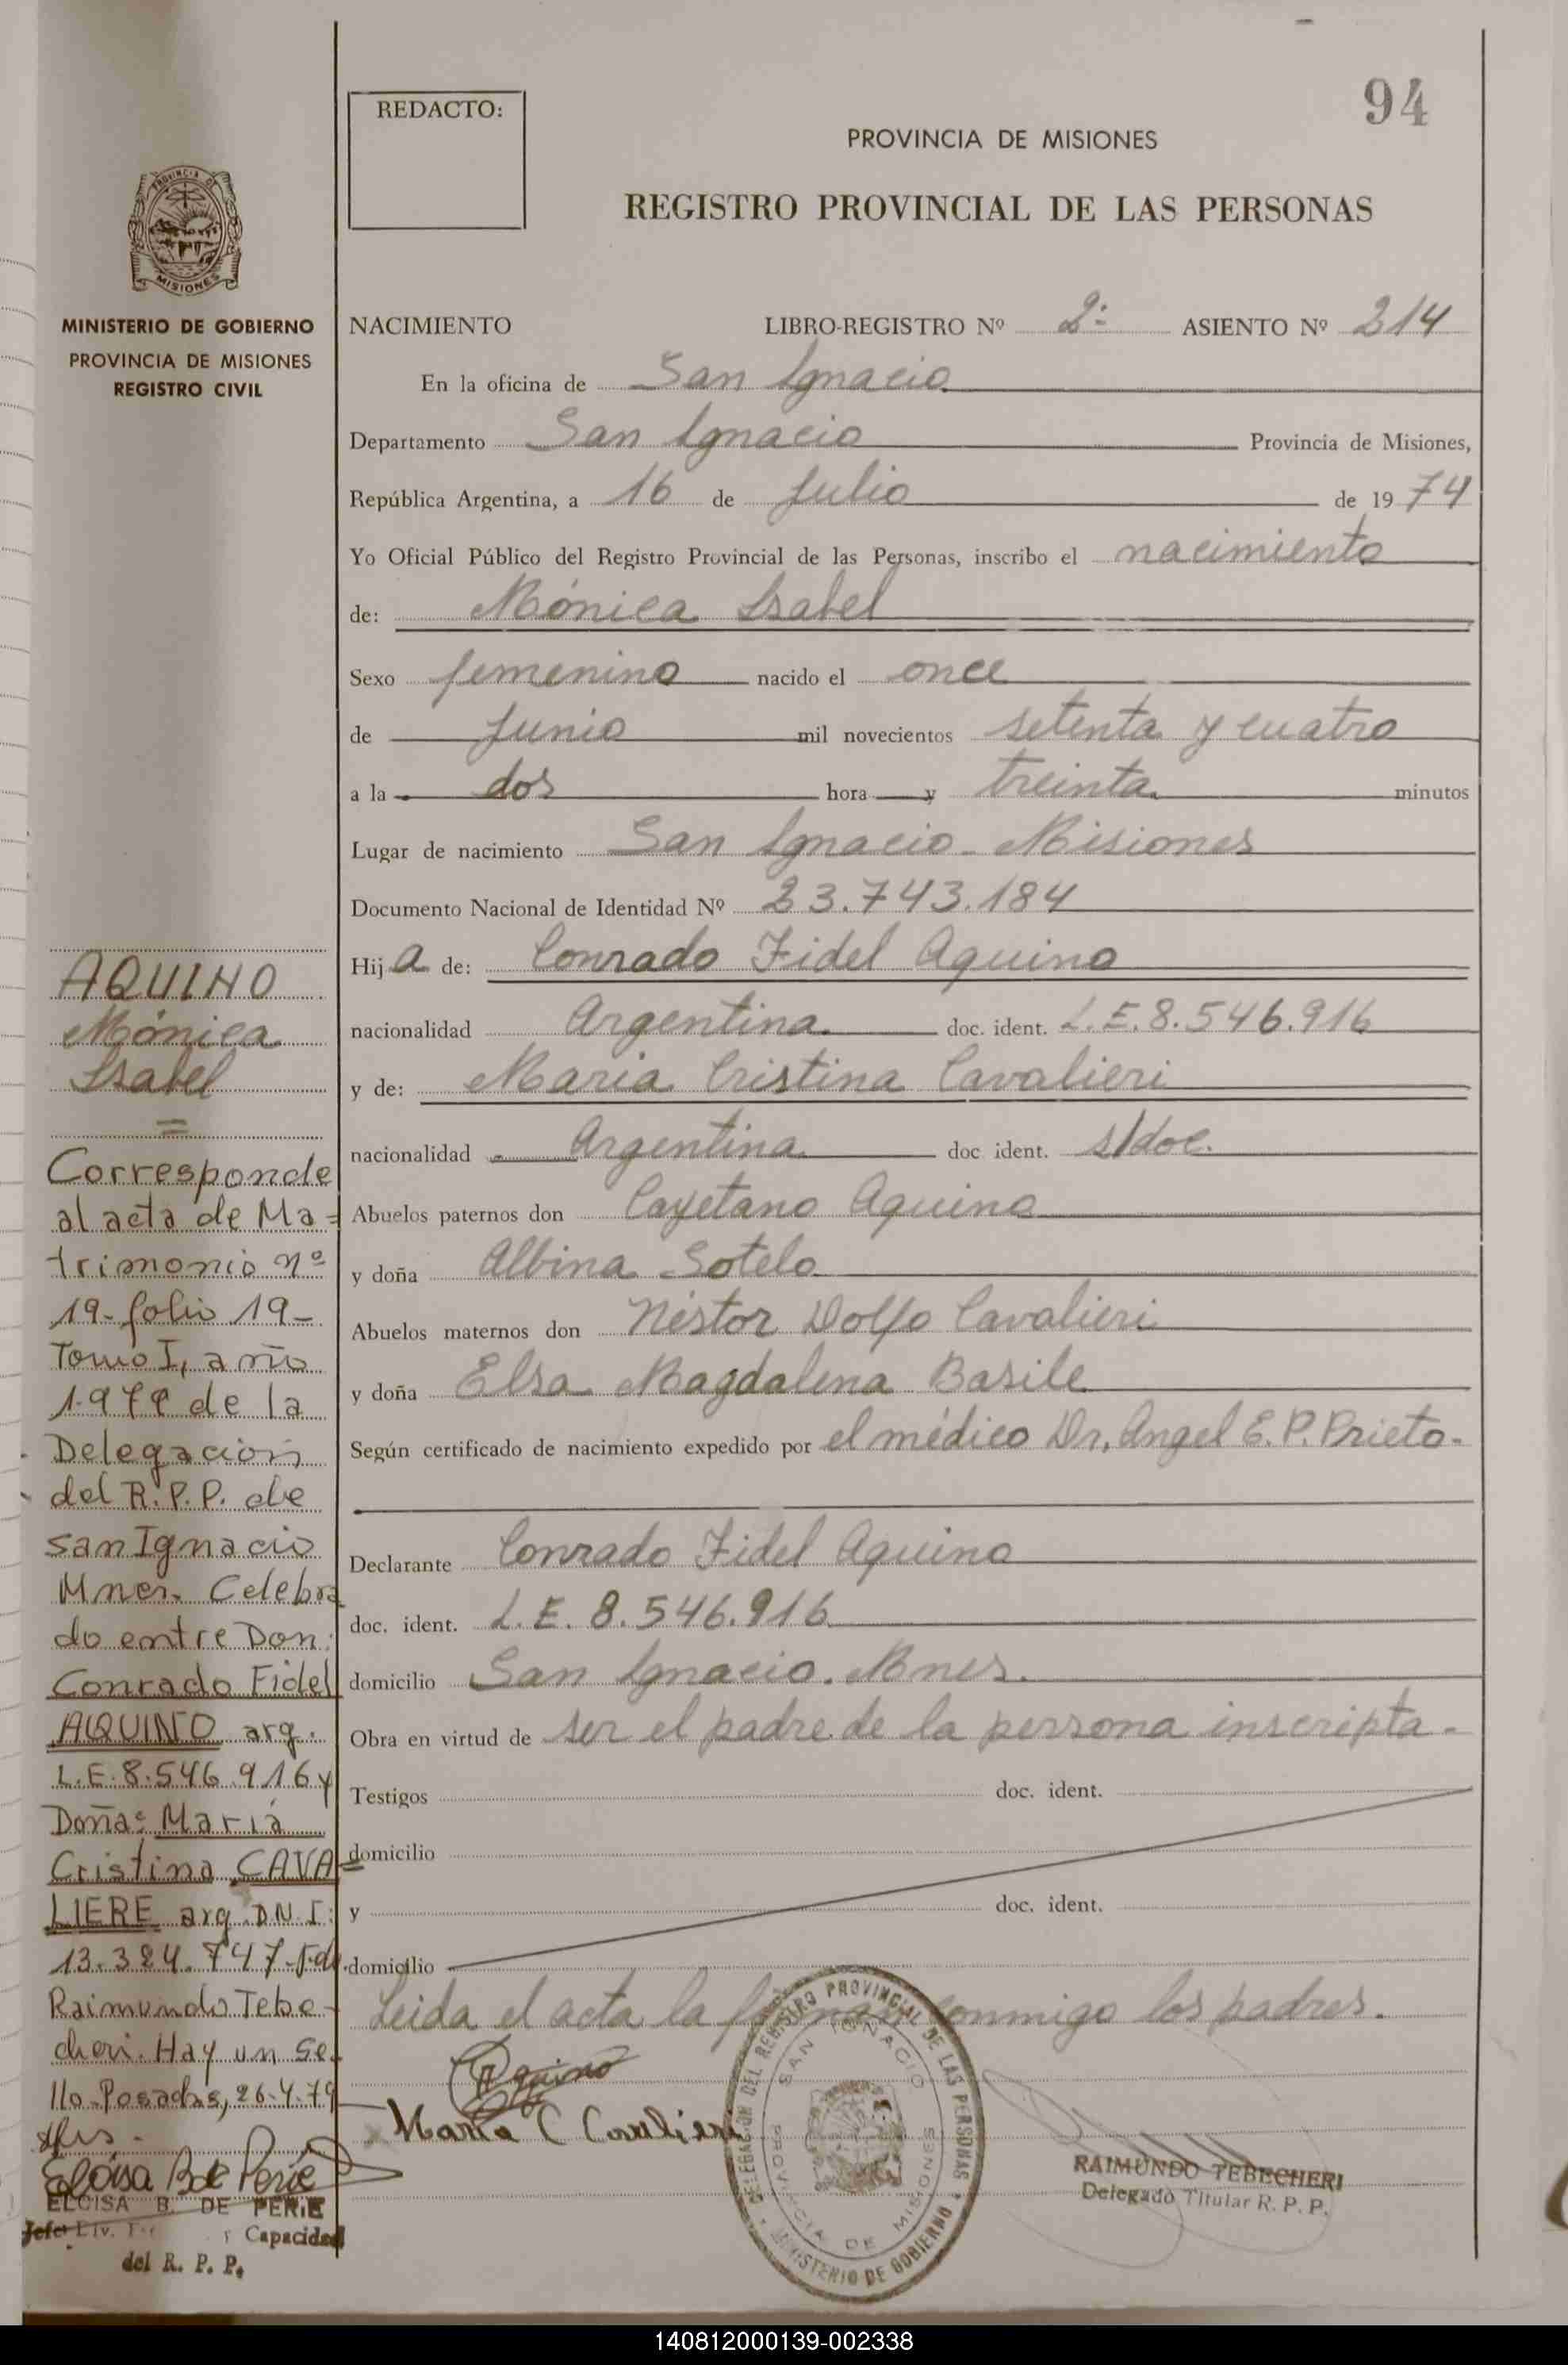 94
REDACTO:
PROVINCIA DE MISIONES
REGISTRO PROVINCIAL DE LAS PERSONAS
PROVINCIA DE
MISIONES
MINISTERIO DE GOBIERNO
PROVINCIA DE MISIONES
REGISTRO CIVIL
NACIMIENTO LIBRO-REGISTRO Nº 2º ASIENTO Nº 214
En la oficina de San Ignacio
Departamento San Ignacio Provincia de Misiones,
República Argentina, a 16 de Julio de 1974
Yo Oficial Público del Registro Provincial de las Personas, inscribo el nacimiento
de: Mónica Isabel
Sexo femenino nacido el once
de Junio mil novecientos setenta y cuatro
a la dos hora y treinta minutos
Lugar de nacimiento San Ignacio - Misiones
Documento Nacional de Identidad Nº 23.743.184
Hija de: Conrado Fidel Aquino
nacionalidad Argentina doc. ident. L.E. 8.546.916
y de: Maria Cristina Cavalieri
nacionalidad Argentina doc ident. s/doc.
Abuelos paternos don Cayetano Aquino
y doña Albina Sotelo
Abuelos maternos don Néstor Dolfo Cavalieri
y doña Elsa Magdalena Basile
Según certificado de nacimiento expedido por el médico Dr. Angel E. P. Prieto.
Declarante Conrado Fidel Aquino
doc. ident. L.E. 8.546.916
domicilio San Ignacio. Mnes.
Obra en virtud de ser el padre de la persona inscripta.
Testigos doc. ident.
domicilio
y doc. ident.
domicilio
Leida el acta la firman conmigo los padres.
Aquino
Maria C Cavalieri
DELEGACION DEL REGISTRO PROVINCIAL DE LAS PERSONAS
MINISTERIO DE GOBIERNO
SAN IGNACIO
PROVINCIA DE MISIONES
RAIMUNDO TEBECHERI
Delegado Titular R. P. P.
AQUINO
Mónica
Isabel
=
Corresponde
al acta de Ma=
trimonio nº
19- folio 19-
Tomo I, año
1.979 de la
Delegación
del R.P.P. de
San Ignacio
Mnes. Celebra
do entre Don:
Conrado Fidel
AQUINO arg.
L.E. 8.546.916 y
Doña: María
Cristina CAVA=
LIERE arg. D.N.I:
13.384.747-Fdo.
Raimundo Tebe-
cheri. Hay un se-
llo. Posadas, 26-4-79
Eloisa B de Perie
ELOISA B. DE PERIE
Jefe Div. Capacidad
del R. P. P.
140812000139-002338